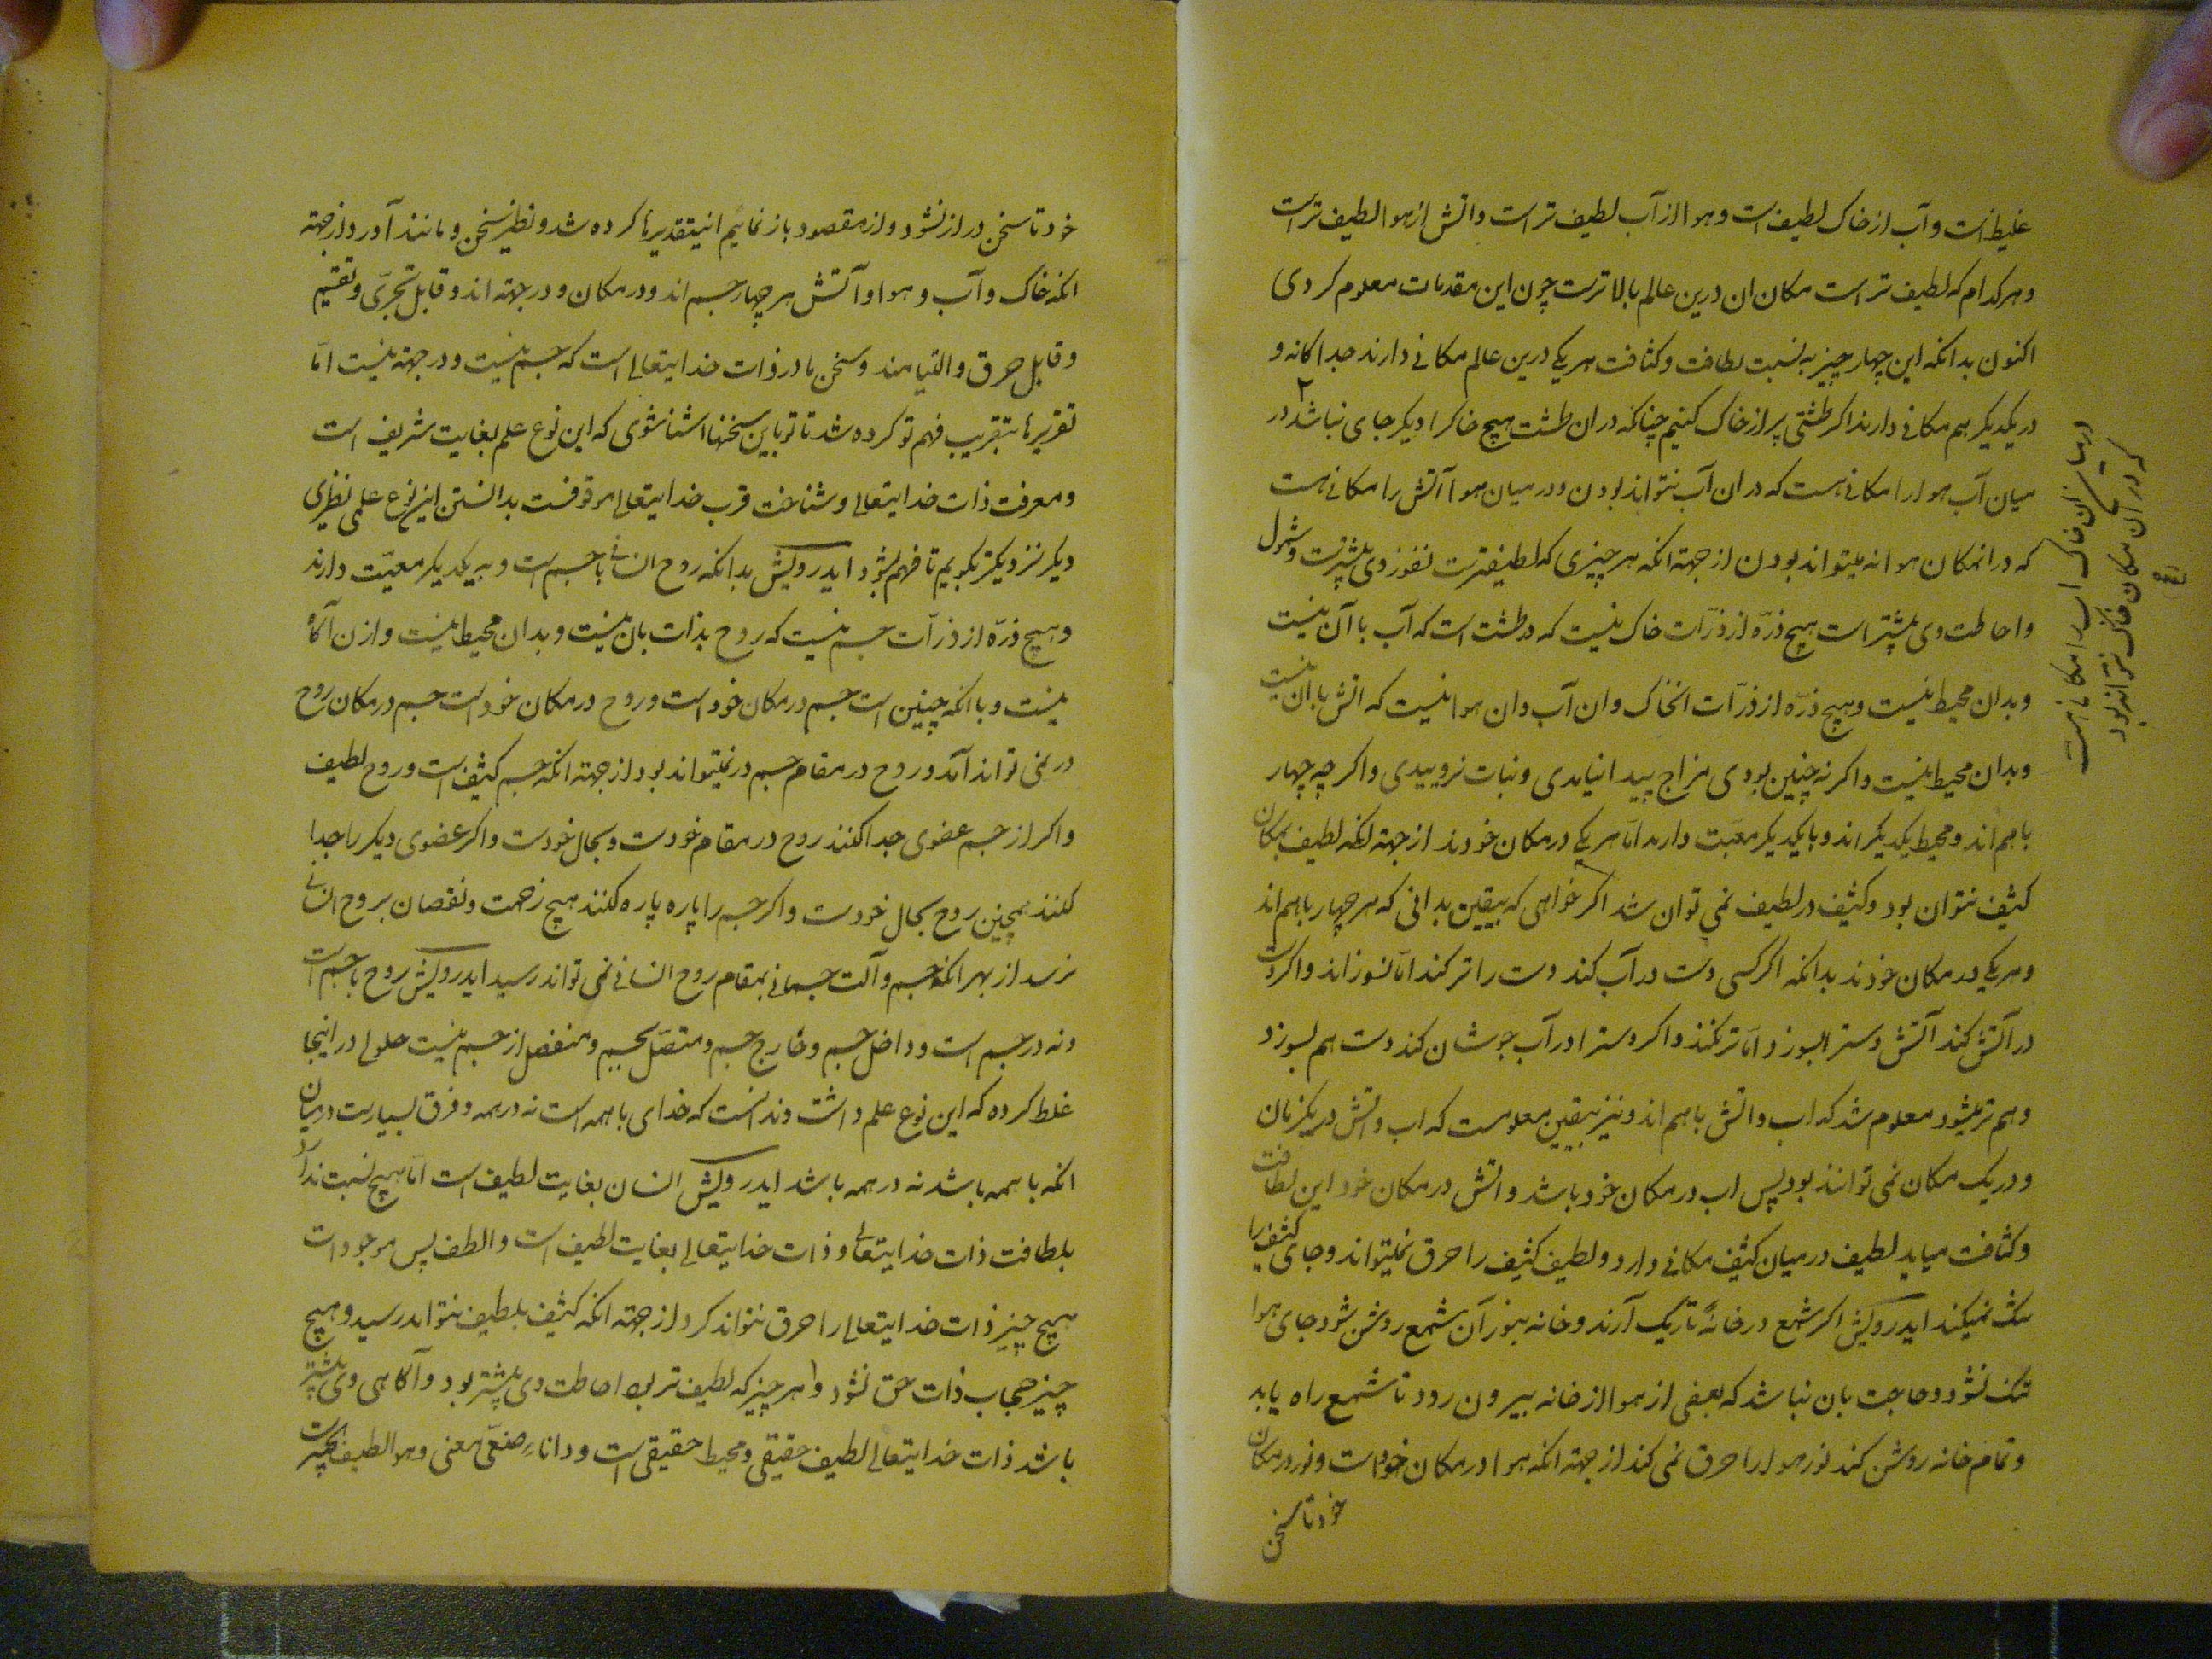 غلیظ است و آب از خاک لطیف است و هوا از آب لطیف تر است و اتش از هوا لطیف تر است
و هر کدام که لطیف تر است مکان ان درین عالم بالاترست چون این مقدمات معلوم کردی
اکنون بدانکه این چهار چیز به نسبت لطافت و کثافت هر یکی درین عالم مکانی دارند جداکانه و
در یکدیکر هم مکانی دارند اکر طشتی پر از خاک کنیم چنانکه دران طشت هیچ خاکرا دیکر جای نباشد ۲ در
میان آب هوا را مکانی هست که دران آب نتواند بودن و در میان هوا آتش را مکانی هست
که درانمکان هوا نه میتواند بودن از جهته انکه هر چیزی که لطیفترست نفوذ وی بیشترست و شمول
و احاطت وی بیشتر است هیچ ذرّه از ذرّات خاک نیست که در طشت است که آب با آن نیست
و بدان محیط نیست و هیچ ذرّه از ذرّات انخاک و ان آب و ان هوا نیست که اتش با ان نیست
و بدان محیط نیست و اکر نه چنین بودی مزاج پیدا نیامدی و نبات نروییدی و اکر چه چهار
با هم اند و محیط یکدیکراند و با یکدیکر معیّت دارند امّا هر یکی در مکان خودند از جهته انکه لطیف بمکان
کثیف نتوان بود و کثیف در لطیف نمی توان شد اکر خواهی که بیقین بدانی که هر چهار با هم اند
و هر یکی در مکان خودند بدانکه اکر کسی دست در آب کند دست را تر کند امّا نسوزاند و اکر دست
در آتش کند آتش دسترا بسوزد امّا تر نکند و اکر دسترا در آب جوشان کند دست هم بسوزد
و هم تر میشود معلوم شد که اب و اتش با هم اند و نیز بیقین معلومست که اب و اتش در یکزمان
و در یک مکان نمی توانند بود پس اب در مکان خود باشد و اتش در مکان خود این لطافت
و کثافت میاید لطیف در میان کثیف مکانی دارد و لطیف کثیف را حرق نمیتواند و جای کثیف را
تنک نمیکند ایدرویش اکر شمع در خانهٔ تاریک آرند و خانه بنور آن شمع روشن شود جای هوا
تنک نشود و حاجت بان نباشد که بعضی از هوا از خانه بیرون رود تا شمع راه یابد
و تمام خانه روشن کند نور هوا را حرق نمی کند از جهته انکه هوا در مکان خود است و نور در مکان
خود تا سخن
در میان آن خاک اب را مکانی هست
که در آن مکان خاک نتواند بود
خود تا سخن دراز نشود و از مقصود باز نمانیم اینتقدیرها کرده شد و نظیر سخن و مانند آورد از جهته
انکه خاک و آب و هوا و آتش هر چهار جسم اند و در مکان و در جهته اند و قابل تجزّی و تقسیم
و قابل حرق و التیامند و سخن ما در ذات خدایتعالی است که جسم نیست و در جهته نیست امّا
تقریرها بتقریب فهم تو کرده شد تا تو باین سخنها اشنا شوی که این نوع علم بغایت شریف است
و معرفت ذات خدایتعالی و شناخت قرب خدایتعالی موقوفست بدانستن این نوع علمی نظیری
دیکر نزدیکتر بکویم تا فهم شود ایدرویش بدانکه روح انسانی با جسم است و به یکدیکر معیّت دارند
و هیچ ذرّه از ذرّات جسم نیست که روح بذات بان نیست و بدان محیط نیست و ازن آکاه
نیست و با انکه چنین است جسم در مکان خود است و روح در مکان خود است جسم در مکان روح
در نمی تواند آمد و روح در مقام جسم در نمیتواند بود از جهته انکه جسم کثیف است و روح لطیف
و اکر از جسم عضوی جدا کنند روح در مقام خودست و بحال خودست و اکر عضوی دیکر را جدا
کنند همچنین روح بحال خودست و اکر جسم را پاره پاره کنند هیچ زحمت و نقصان بروح انسانی
نرسد از بهر انکه جسم و آلت جسمانی بمقام روح انسانی نمی تواند رسید ایدرویش روح با جسم است
و نه در جسم است و داخل جسم و خارج جسم و متصل بجسم و منفصل از جسم نیست حلولی در اینجا
غلط کرده که این نوع علم داشت وندانست که خدای با همه است نه در همه و فرق بسیارست در میان
انکه با همه باشد نه در همه باشد ایدرویش انسان بغایت لطیف است امّا هیچ نسبت ندارد
بلطافت ذات خدایتعالی و ذات خدایتعالی بغایت لطیف است و الطف پس موجود است
هیچ چیز ذات خدایتعالی را حرق نتواند کرد از جهته انکه کثیف بلطیف نتواند رسید و هیچ
چیز حجاب ذات حق نشود و هر چیز که لطیف تر بود احاطت وی بیشتر بود و آکاهی وی بیشتر
باشد ذات خدایتعالی لطیف حقیقی و محیط حقیقی است و داناء معنی و هو اللطیف الخبیر